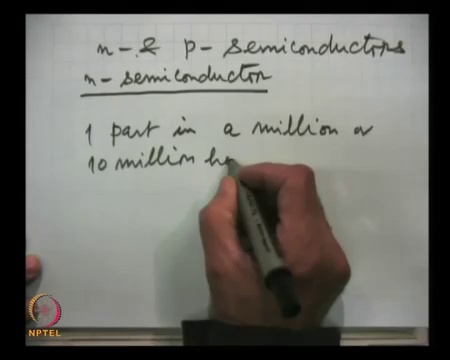 n- & p- semiconductors
n- semiconductor
1 part in a million or
10 million ha
NPTEL